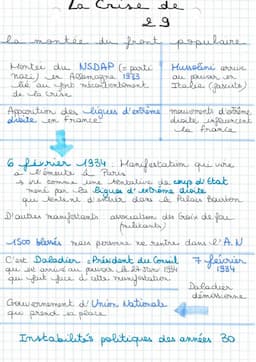 La Crise de
29
la montée du front populaire
Montée du NSDAP (= parti
nazi) en Allemagne 1933
lié au fort mécontentement
de la crise
Mussolini arrive
au pouvoir en
Italie (fasciste)
Apparition des ligues d'extrême
droite en France
mouvements d'extrême
droite influencent
la France
6 février 1934 : Manifestation qui vire
à l'émeute à Paris
→ vu comme une tentative de coup d'Etat
mené par les ligues d'extrême droite
qui tentent d'entrer dans le Palais Bourbon
D'autres manifestants association des Croix de feu
1500 blessés mais personne ne rentre dans l'A.N
C'est Daladier = Président du Conseil
qui est arrivé au pouvoir le 1934
qui fait face à cette manifestation
7 février
1934
Daladier
démissionne
Gouvernement d'Union Nationale
qui prend sa place
Instabilités politiques des années 30